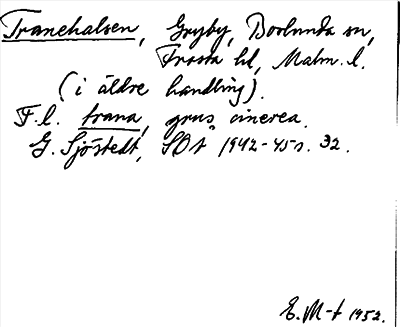 Tranehalsen, Gryby, Bosarps sn,
Frosta hd, Malm. l.
(i äldre handling).
F. l. trana, grus cinerea.
G. Sjöstedt, SOÅ 1942-45 s. 32.
E. M-t 1952.